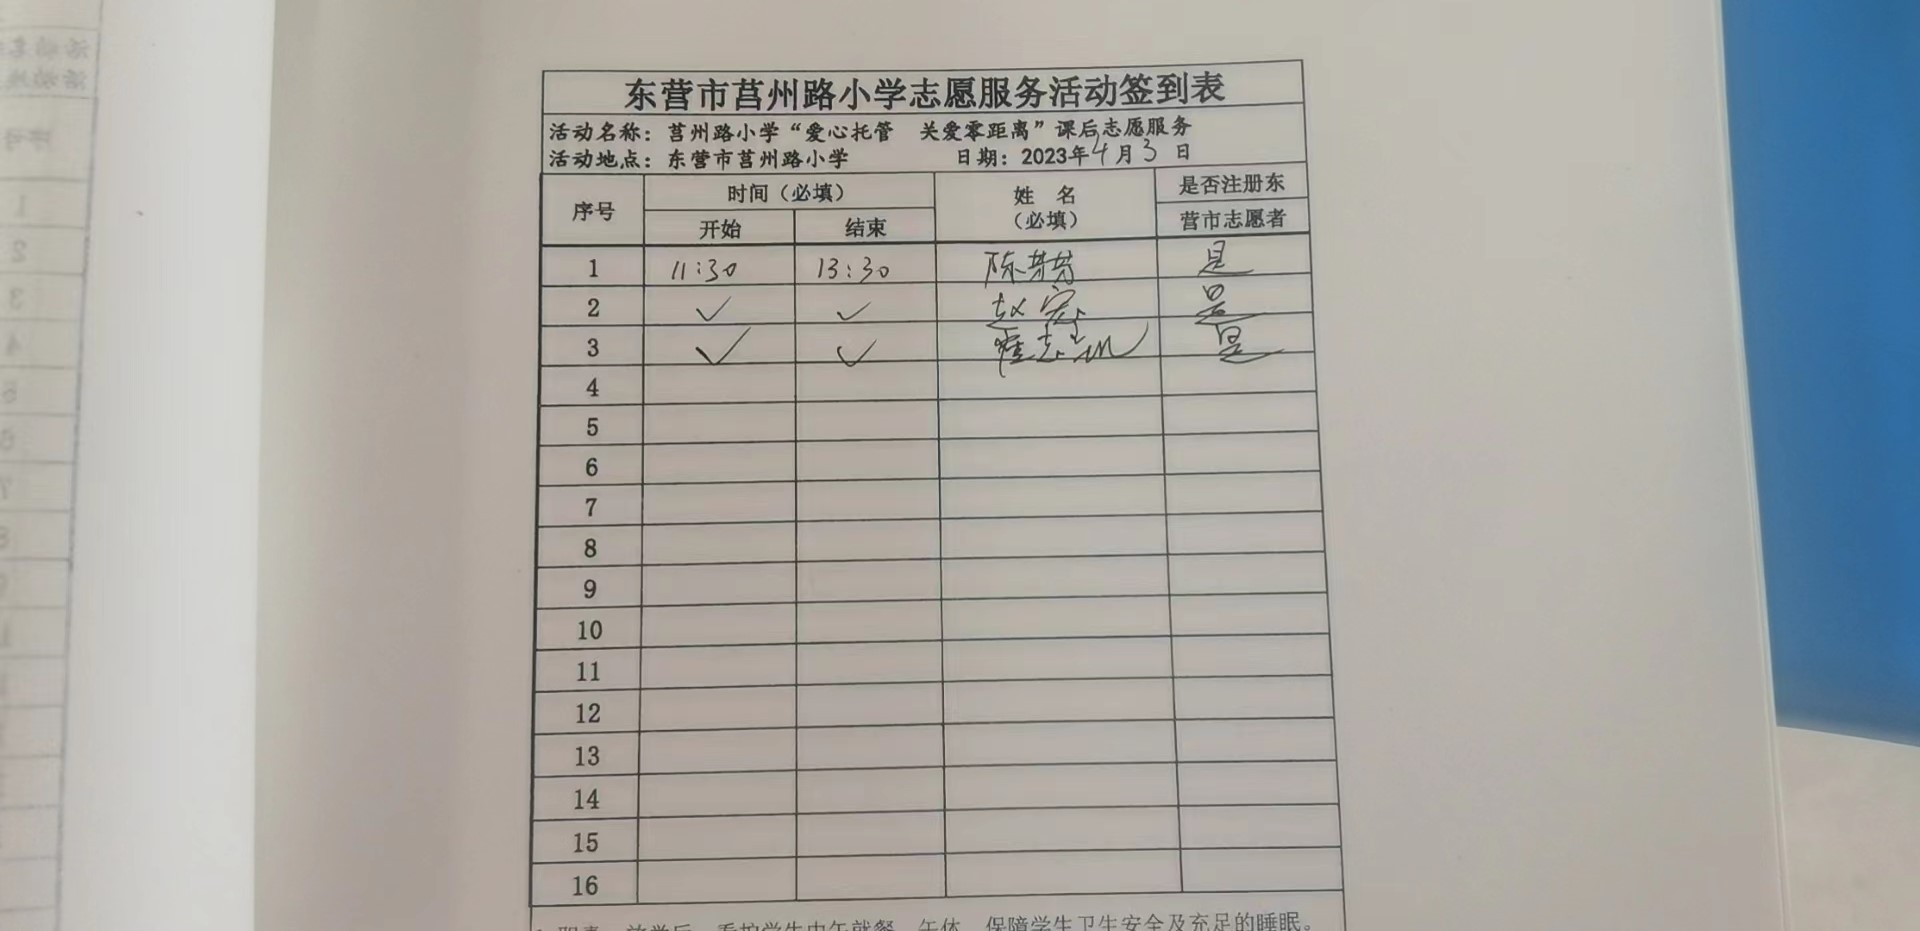 东营市莒州路小学志愿服务活动签到表
活动名称：莒州路小学“爱心托管 关爱零距离”课后志愿服务
活动地点：东营市莒州路小学 日期：2023年4月3日
序号 时间（必填） 姓 名（必填） 是否注册东营市志愿者
开始 结束
1 11:30 13:30 陈芳芳 是
2 ✓ ✓ 赵宏 是
3 ✓ ✓ 是
4
5
6
7
8
9
10
11
12
13
14
15
16
保障学生卫生安全及充足的睡眠。